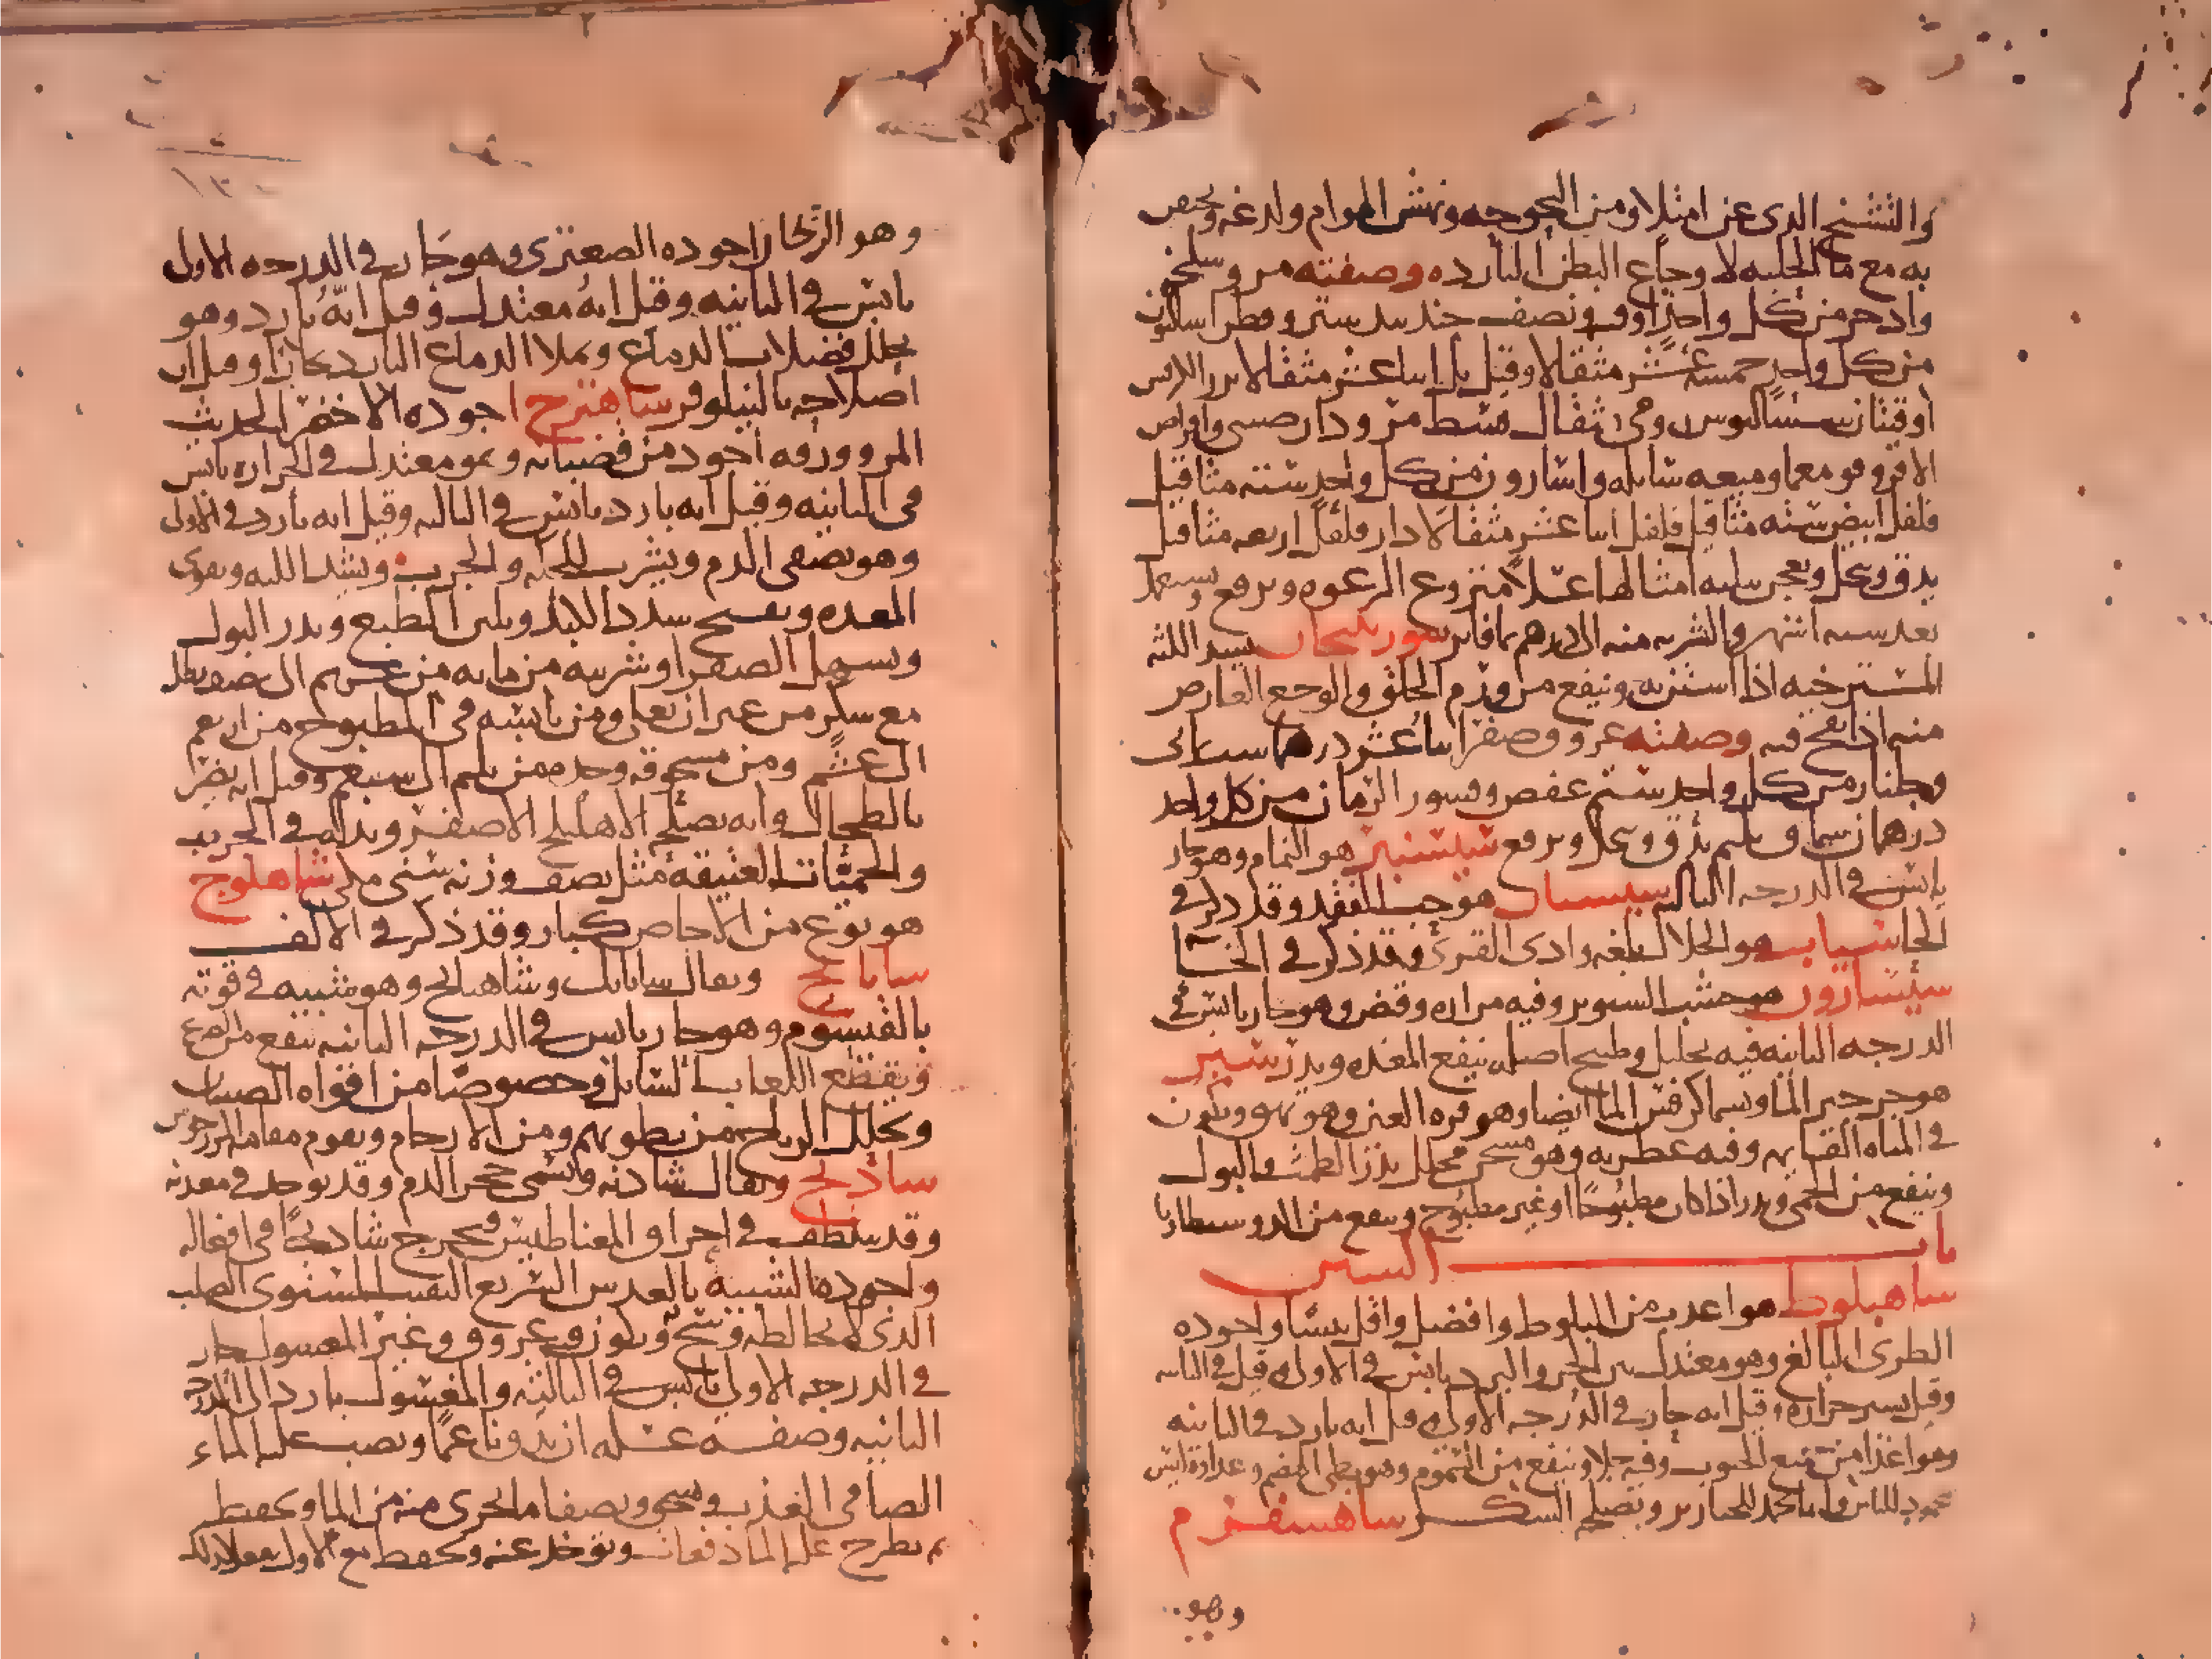 والتشنج الذى عن امتلا ومن البحوحه ونهش الهوام ولدغه ويحقن
به مع ما الحلبه لاوجاع البطن البارده وصفته مر وسليخه
واذخر من كل واحد اوقيه ونصف جندبيدستر وفطراساليون
من كل واحد خمسة عشر مثقالا وقيل بل اثنا عشر مثقالا بزر الكرفس
اوقيتان سساليوس وحى مثقال قسط مر ودارصينى واقراص
الاقروقومعما وميعه سايله واسارون من كل واحد سته مثاقيل
فلفل ابيض سته مثاقيل فلفل اثنا عشر مثقالا دارفلفل اربعه مثاقيل
يدق وينخل ويعجن بثلثه امثالها عسلا منزوع الرغوه ويرفع ويستعمل
بعد سته اشهر والشربه منه الى درهم بما فاتر سورنجان يشد اللثه
المسترخيه اذا استن به وينفع من ورم الحلق والوجع العارض
منه اذا نفخ فيه وصفته عروق صفر اثنا عشر درهما
وجلنار من كل واحد سته عفص وقشور الرمان من كل واحد
درهمان سماق ثلثه يدق وينخل ويرفع سيسنبر هو النمام وهو حار
يابس فى الدرجه الثالثه سيسبان هو حب الفقد وقد ذكر فى
الحا سياب هو الخلال بلغه وادى القرى وقد ذكر فى الخا
سيسارون هو خشب السوير وفيه مراره وقبض وهو حار يابس فى
الدرجه الثانيه فيه تحليل وطبيخ اصله ينفع المعده ويدر سير
هو جرجير الما وسماكرفس الما ايضا وهو قره العين وهو نهرى ويكون
فى المياه القايمه وفيه عطريه وهو مسخن محلل يدر الطمث والبول
وينفع من الحمى ويدر اذا كان مطبوخا او غير مطبوخ وينفع من الدوسنطاريا
باب السين
ساهبلوط هو اعذب من البلوط وافضل واقل يبسا واجوده
الطرى البالغ وهو معتدل بين الحر والبرد يابس فى الاولى وقيل فى الثانيه
وقيل يسير حراره وقيل انه حار فى الدرجه الاولى وقيل انه بارد فى الثانيه
وهو اغذا من جميع الحبوب وفيه جلا وينفع من السموم وهو بطى الهضم وغذاوه ليس
محمود للناس وانما يحمد للخنازير ويصلحه السكر ساهسفرم
وهو
وهو الريحان اجوده الصعترى وهو حار فى الدرجه الاولى
يابس فى الثانيه وقيل انه معتدل وقيل انه بارد وهو
يحلل فضلات الدماغ ويملا الدماغ البارد بخارا وقيل ان
اصلاحه بالنيلوفر ساهترج اجوده الاخضر الحديث
المر وورقه اجود من قضبانه وهو معتدل فى الحراره يابس
فى الثانيه وقيل انه بارد يابس فى الثالثه وقيل انه بارد فى الاولى
وهو يصفى الدم ويشرب للحكه والجرب ويشد اللثه ويقوى
المعده ويفتح سدد الكبد ويلين الطبع ويدر البول
ويسهل الصفرا وشربته من مايه من عشره الى نصف رطل
مع سكر من غير ان يغلى ومن يابسه فى المطبوخ من اربعه
الى عشره ومن مسحوقه وحده من ثلثه الى سبعه وقيل انه يضر
بالطحال وانه يصلحه الاهليلج الاصفر وبدله فى الجرب
والحميات العتيقه مثل نصف وزنه سنى مكى شاهلوج
هو نوع من الاجاص كبار وقد ذكر فى الالف
سابابج ويقال سابابك وشاهبابج وهو شبيه فى قوته
بالقيسوم وهو حار يابس فى الدرجه الثانيه ينفع من الصرع
ويقطع اللعاب السايل وخصوصا من افواه الصبيان
ويحلل الرياح من بطونهم ومن الارحام ويقوم مقام المرزنجوش
ساذنج ويقال شادنه ويسمى حجر الدم وقد يوجد فى معدنه
وقد يتلطف فى احراق المغناطيس فيخرج شاذنجا فى افعاله
واجوده الشبيه بالعدس السريع التفتت المستوى الصلب
الذى لا يخالطه وسخ ويكون فيه عروق وغير المغسول حار
فى الدرجه الاولى يابس فى الثالثه والمغسول بارد الى الدرجه
الثانيه وصفه غسله ان يدق ناعما ويصب عليه الماء
الصافى العذب ويسحق ويصفا ما يجرى منه من الما ويحفظ
ثم يطرح عليه الما دفعات ويوخذ عنه ويحفظ مع الاول يفعل ذلك